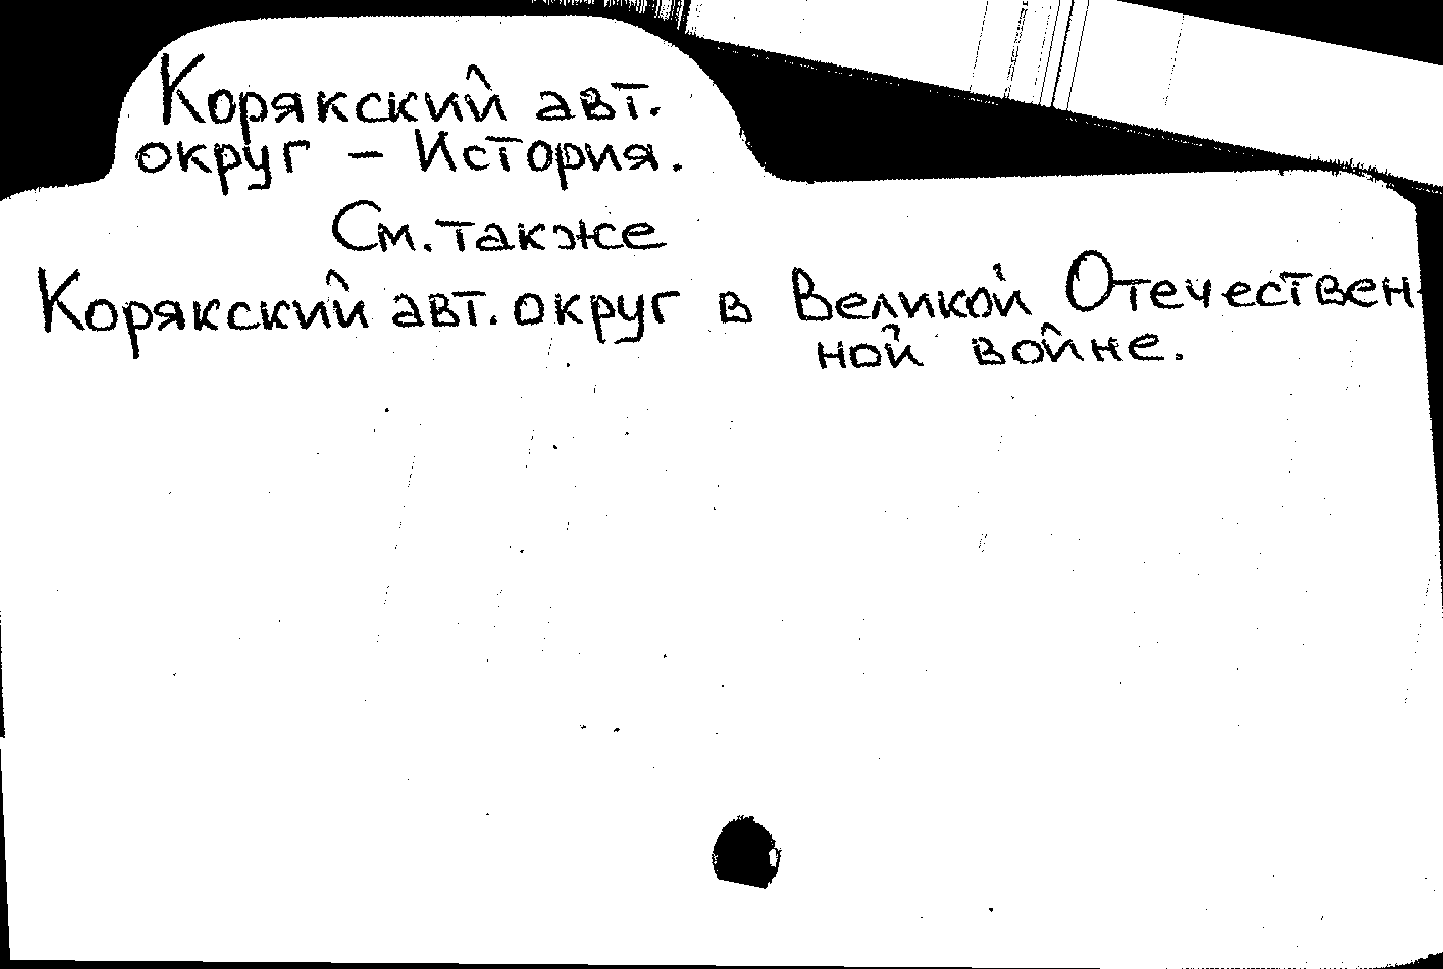 Корякский авт.
округ – История.
См. также
Корякский авт. округ в Великой Отечествен-
ной войне.